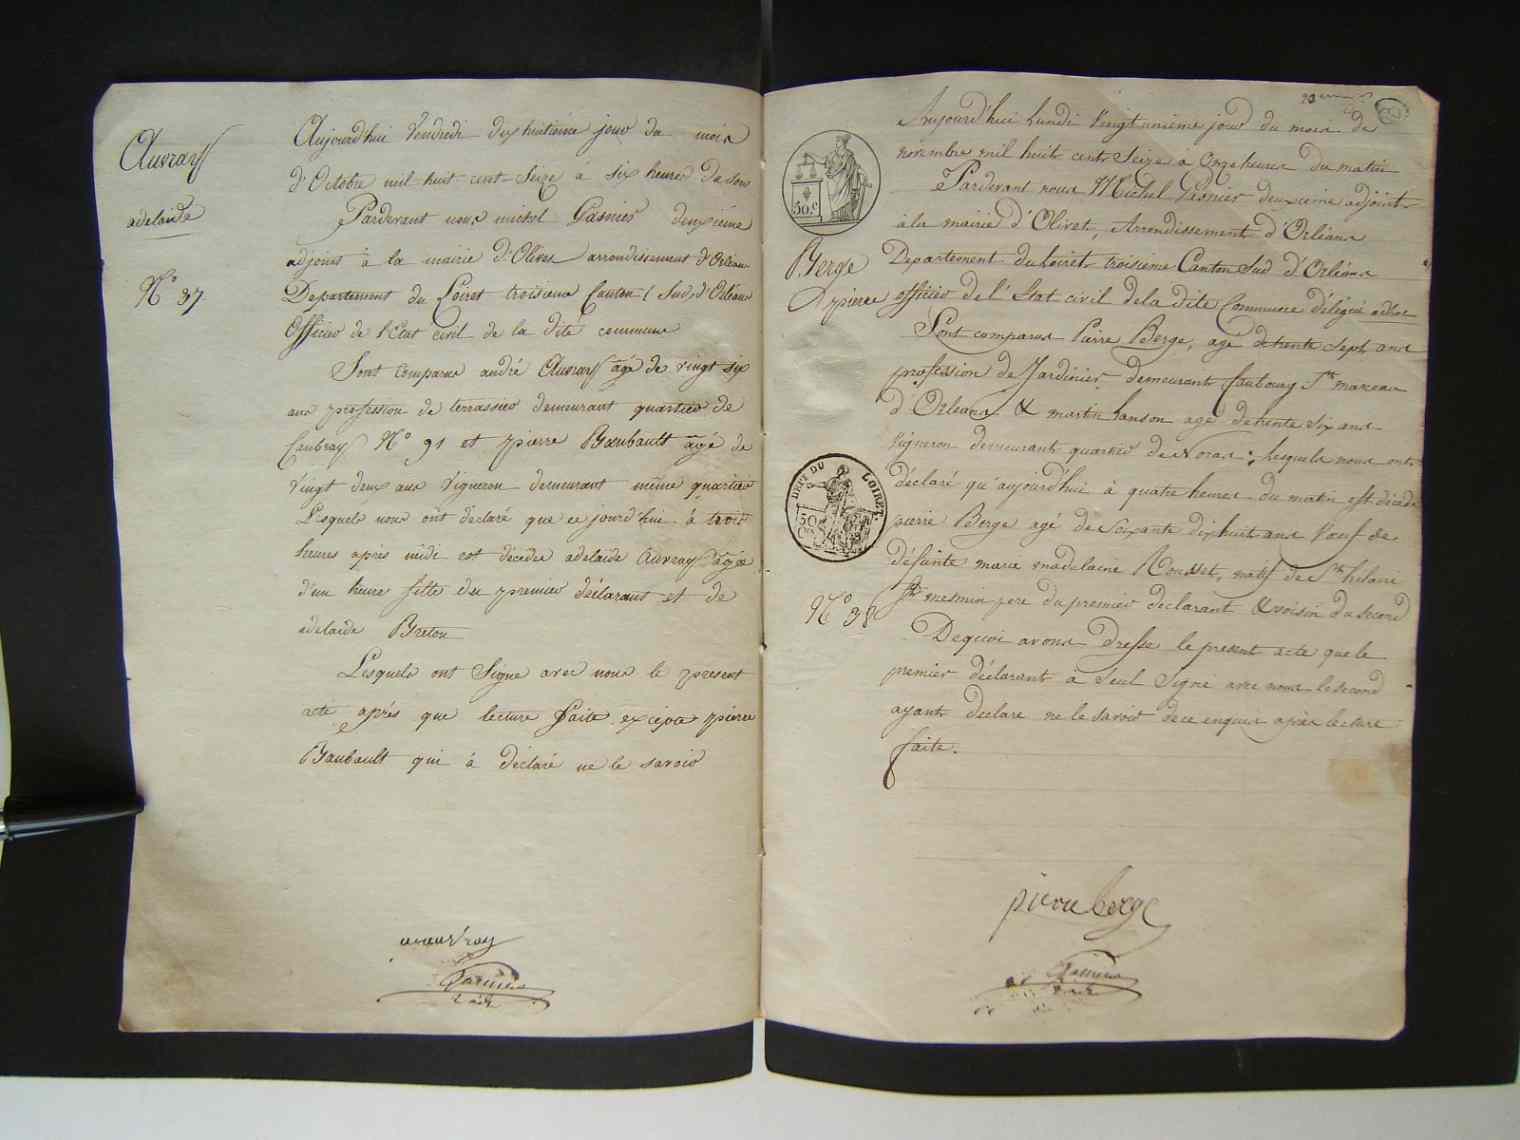 Auvray
adelaide
N.o 37
Aujourd'hui Vendredi dix huitieme jour du mois
d'Octobre mil huit cent Seize à six heures du soir
Pardevant nous michel Gasnier deuxième
adjoint à la mairie d'Olivet arrondissement d'Orléans
Departement du Loiret troisieme Canton (Sud) d'Orléans
Officier de l'Etat civil de la dite commune
Sont comparus andré Auvray agé de vingt six
ans profession de terrassier demeurant quartier de
Caubray N.o 91 et pierre Baubault agé de
Vingt deux ans Vigneron demeurant même quartier
Lesquels nous ont declaré que ce jourd'hui à trois
heures après midi est décédée adelaide Auvray agée
d'un heure fille du premier déclarant et de
adelaide Breton
Lesquels ont Signé avec nous le present
acte après que lecture faite excepté pierre
Baubault qui à déclaré ne le savoir
Gasnier
50.c
DEPT DU LOIRET.
50
Berge
pierre
N.o 38
Aujourd'hui Lundi Vingt unième jour du mois de
novembre mil huit cent Seize à Onze heures du matin
Pardevant nous Michel Gasnier deuxieme adjoint
à la mairie d'Olivet, Arrondissement d'Orléans
Departement du Loiret troisieme Canton Sud d'Orléans
officier de l'Etat civil de la dite Commune délégué adhoc
Sont comparus Pierre Berge, agé de trente Sept ans
profession de Jardinier demeurant faubourg St. marceau
d'Orleans & martin hanson agé de trente Six ans
vigneron demeurant quartier de Noras; lesquels nous ont
déclaré qu'aujourd'hui à quatre heures du matin est décédé
pierre Berge agé de Soixante dix huit ans Veuf de
défunte marie madelaine Rousset, natif de St. hilaire
St. mesmin pere du premier declarant & voisin du second
De quoi avons Dressé le present acte que le
premier déclarant a Seul Signé avec nous le second
ayant déclaré ne le Savoir de ce enquis après lecture
faite.
pierre berge
Gasnier